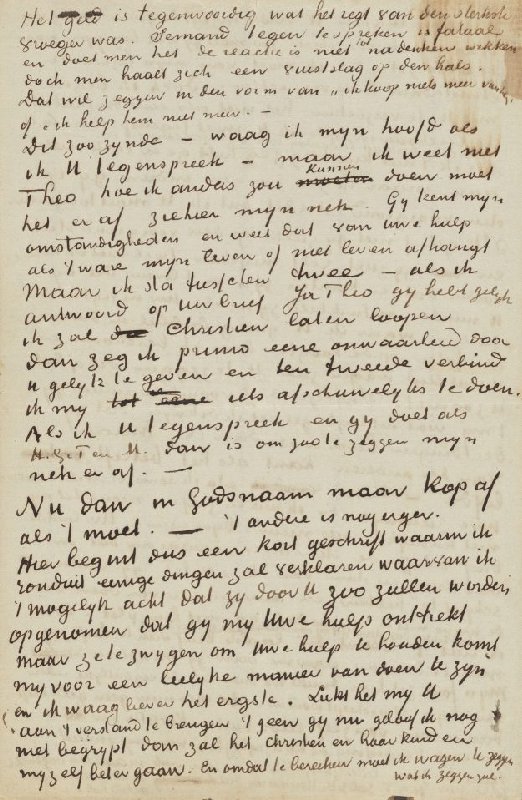 Het geld is tegenwoordig wat het regt van den sterkste
vroeger was. Iemand tegenspreken is fataal
en doet men het de reactie is niet dat nadenken wekken
doch men haalt zich een vuistslag op den hals.
Dat wil zeggen in den vorm van „ik koop niets meer van hem
of „ik help hem niet meer. –
Dit zoo zynde – waag ik mijn hoofd als
ik U tegenspreek – maar ik weet niet
Theo hoe ik anders zou kunnen moeten doen moet
het er af ziehier myn nek. Gy kent myn
omstandigheden en weet dat van Uwe hulp
als 't ware myn leven of niet leven afhangt
Maar ik sta tusschen twee – als ik
antwoord op Uw brief Ja Theo gy hebt gelyk
ik zal de Christien laten loopen
dan zeg ik primo eene onwaarheid door
U gelyk te geven en ten tweede verbind
ik my tot eene iets afschuwelyks te doen.
Als ik U tegenspreek en gy doet als
H.G.T en M. dan is om zoo te zeggen myn
nek er af. —
Nu dan in Godsnaam maar kop af
als 't moet. — 't andere is nog erger.
Hier begint dus een kort geschrift waarin ik
ronduit eenige dingen zal verklaren waarvan ik
't mogelyk acht dat zy door U zoo zullen worden
opgenomen dat gy my Uwe hulp onttrekt
maar ze te zwygen om Uwe hulp te houden komt
my voor een leelyke manier van doen te zyn
en ik waag liever het ergste. Lukt het my U
aan 't verstand te brengen 't geen gy nu geloof ik nog
niet begrypt dan zal het Christien en haar kind en
myzelf beter gaan. En omdat te bereiken moet ik wagen te zeggen
wat ik zeggen zal.